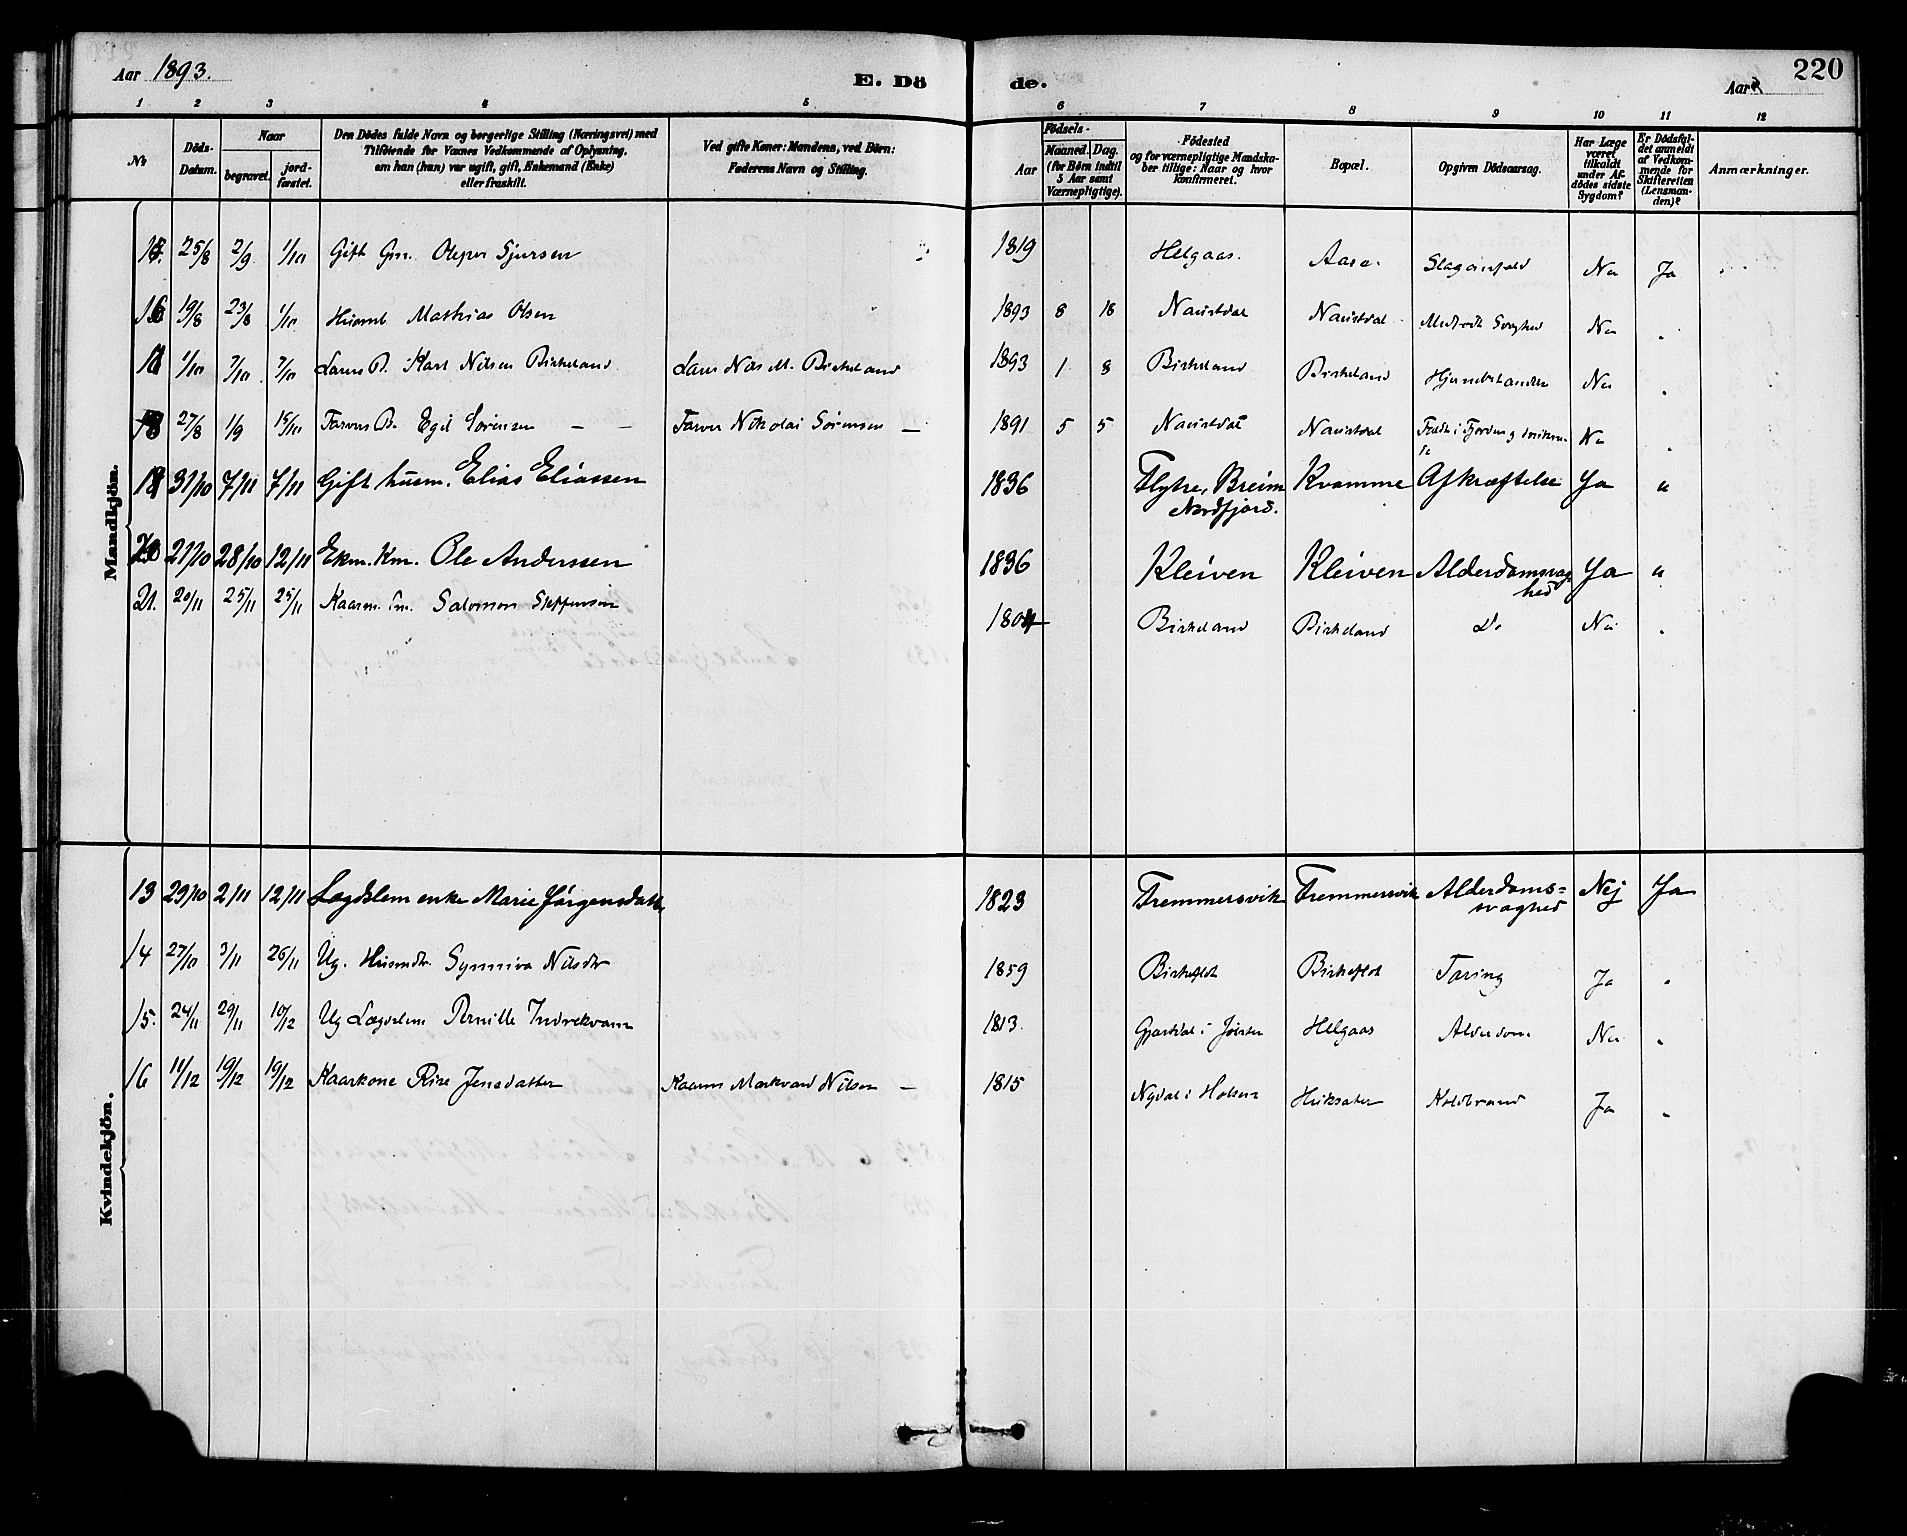 Aar 1893.
E. Dö
de.
Aar
220
1 2 3 4 5 6 7 8 9 10 11 12
No
Döds-Datum.
Naar
begravet.
jord-fæstet.
Den Dödes fulde Navn og borgerlige Stilling (Næringsvei) med
Tilföiende for Voxnes Vedkommende af Oplysning,
om han (hun) var ugift, gift, Enkemand (Enke)
eller fraskilt.
Ved gifte Koner: Mandens, ved Börn:
Faderens Navn og Stilling.
Födsels-
Aar
Maaned. Dag.
(for Börn indtil
5 Aar samt
Værnepligtige).
Födested
og for værnepligtige Mandska-
ber tillige: Naar og hvor
konfirmeret.
Bopæl.
Opgiven Dödsaarsag.
Har Læge
været
tilkaldt
under Af-
dödes sidste
Sygdom?
Er Dödsfal-
det anmeldt
af Vedkom-
mende for
Skifteretten
(Lensman-
den)?
Anmærkninger.
Mandkjön.
15. 25/8 2/9 1/10 Gift Gm. Sjursen 1819 Helgaas. Aase. Ja
16 19/8 23/8 1/10 Mathias Olsen 1893 8 18 Naustdal Naustdal Svaghed
1/10 7/10 7/10 Karl Nilsen Birkeland Nils M. Birkeland 1893 1 8 Birkeland Birkeland
18 27/8 1/9 15/10 Egil Sørensen Nikolai Sørensen — 1891 5 5 Naustdal Naustdal
31/10 7/11 7/11 Gift husm. Elias Eliassen 1836 Flytre, Breim Nordfjord. Kvamme Afkræftelse Ja "
20 21/10 28/10 12/11 Ekm. Km. Ole Anderssen 1836 Kleiven Kleiven Alderdomsvaghed Ja "
21. 20/11 25/11 25/11 Salomon Steffensen Birkeland Birkeland Do
Kvindekjön.
13 29/10 2/11 12/11 Lægdslem enke Marie Jørgensdatt. 1823 Fremmersvik Fremmersvik Alderdoms=svaghed Nej Ja
14 27/10 3/11 26/11 Ug. Husmdtr. Synniva Nilsdtr 1859 Birkeflot Birkeflot Tæring Ja "
15. 24/11 29/11 10/12 Ug Lægdslem Pernille Indrekvam 1813. i Jølster Helgaas Alderdom "
16 11/12 19/12 19/12 Kaarkone Jensdatter Kaarm Markvard Nilsen — 1815 i Holsen Koldbrand Ja "